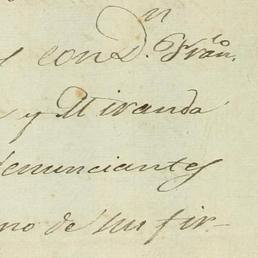 y con D.ⁿ Fran.ᶜᵒ
y Miranda
denunciantes
no de su fir-